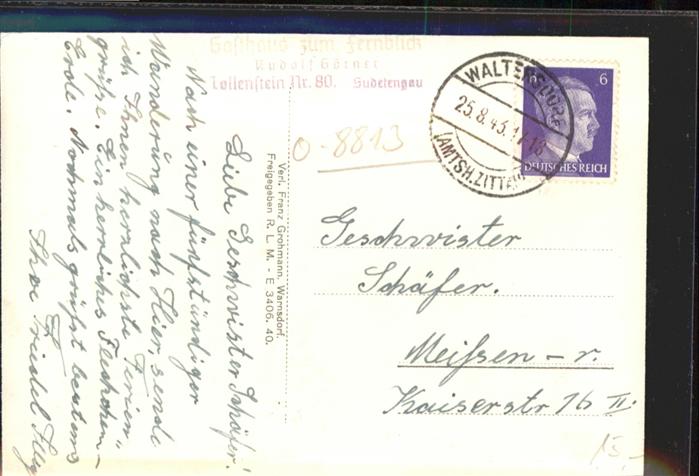 Gasthaus zum Fernblick
Rudolf Görner
Tollenstein Nr. 80. Sudetengau
WALTERSDORF
25.8.43.17-18
(AMTSH. ZITTAU)
6
DEUTSCHES REICH
0-8813
Liebe Geschwister Schäfer!
Nach einer fünfstündiger
Wanderung nach Hier, sende
ich Ihnen herzlichste Ferien-
grüße. Ein herrliches Fleckchen
Erde. Nochmals grüßt bestens
Ihre Friedel
Verl. Franz Grohmann, Warnsdorf.
Freigegeben R. L. M. - E 3406. 40.
Geschwister
Schäfer.
Meißen - r.
Kaiserstr 76 II.
15.-